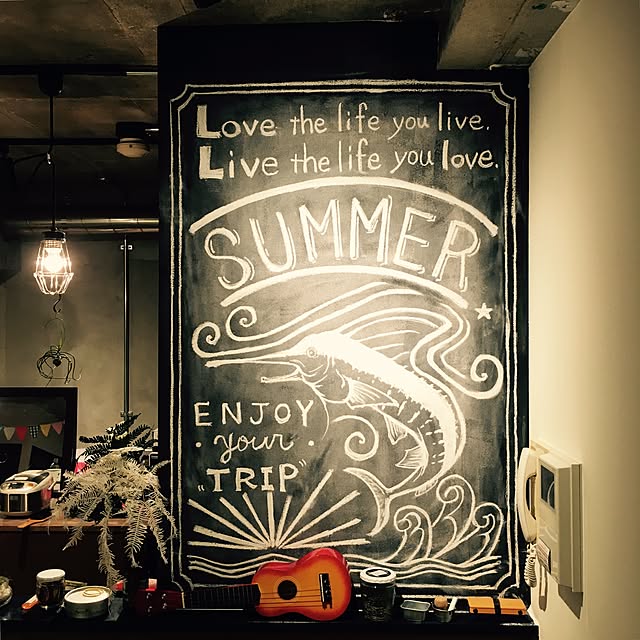 Love the life you live.
Live the life you love.
SUMMER
ENJOY
· your ·
„TRIP"